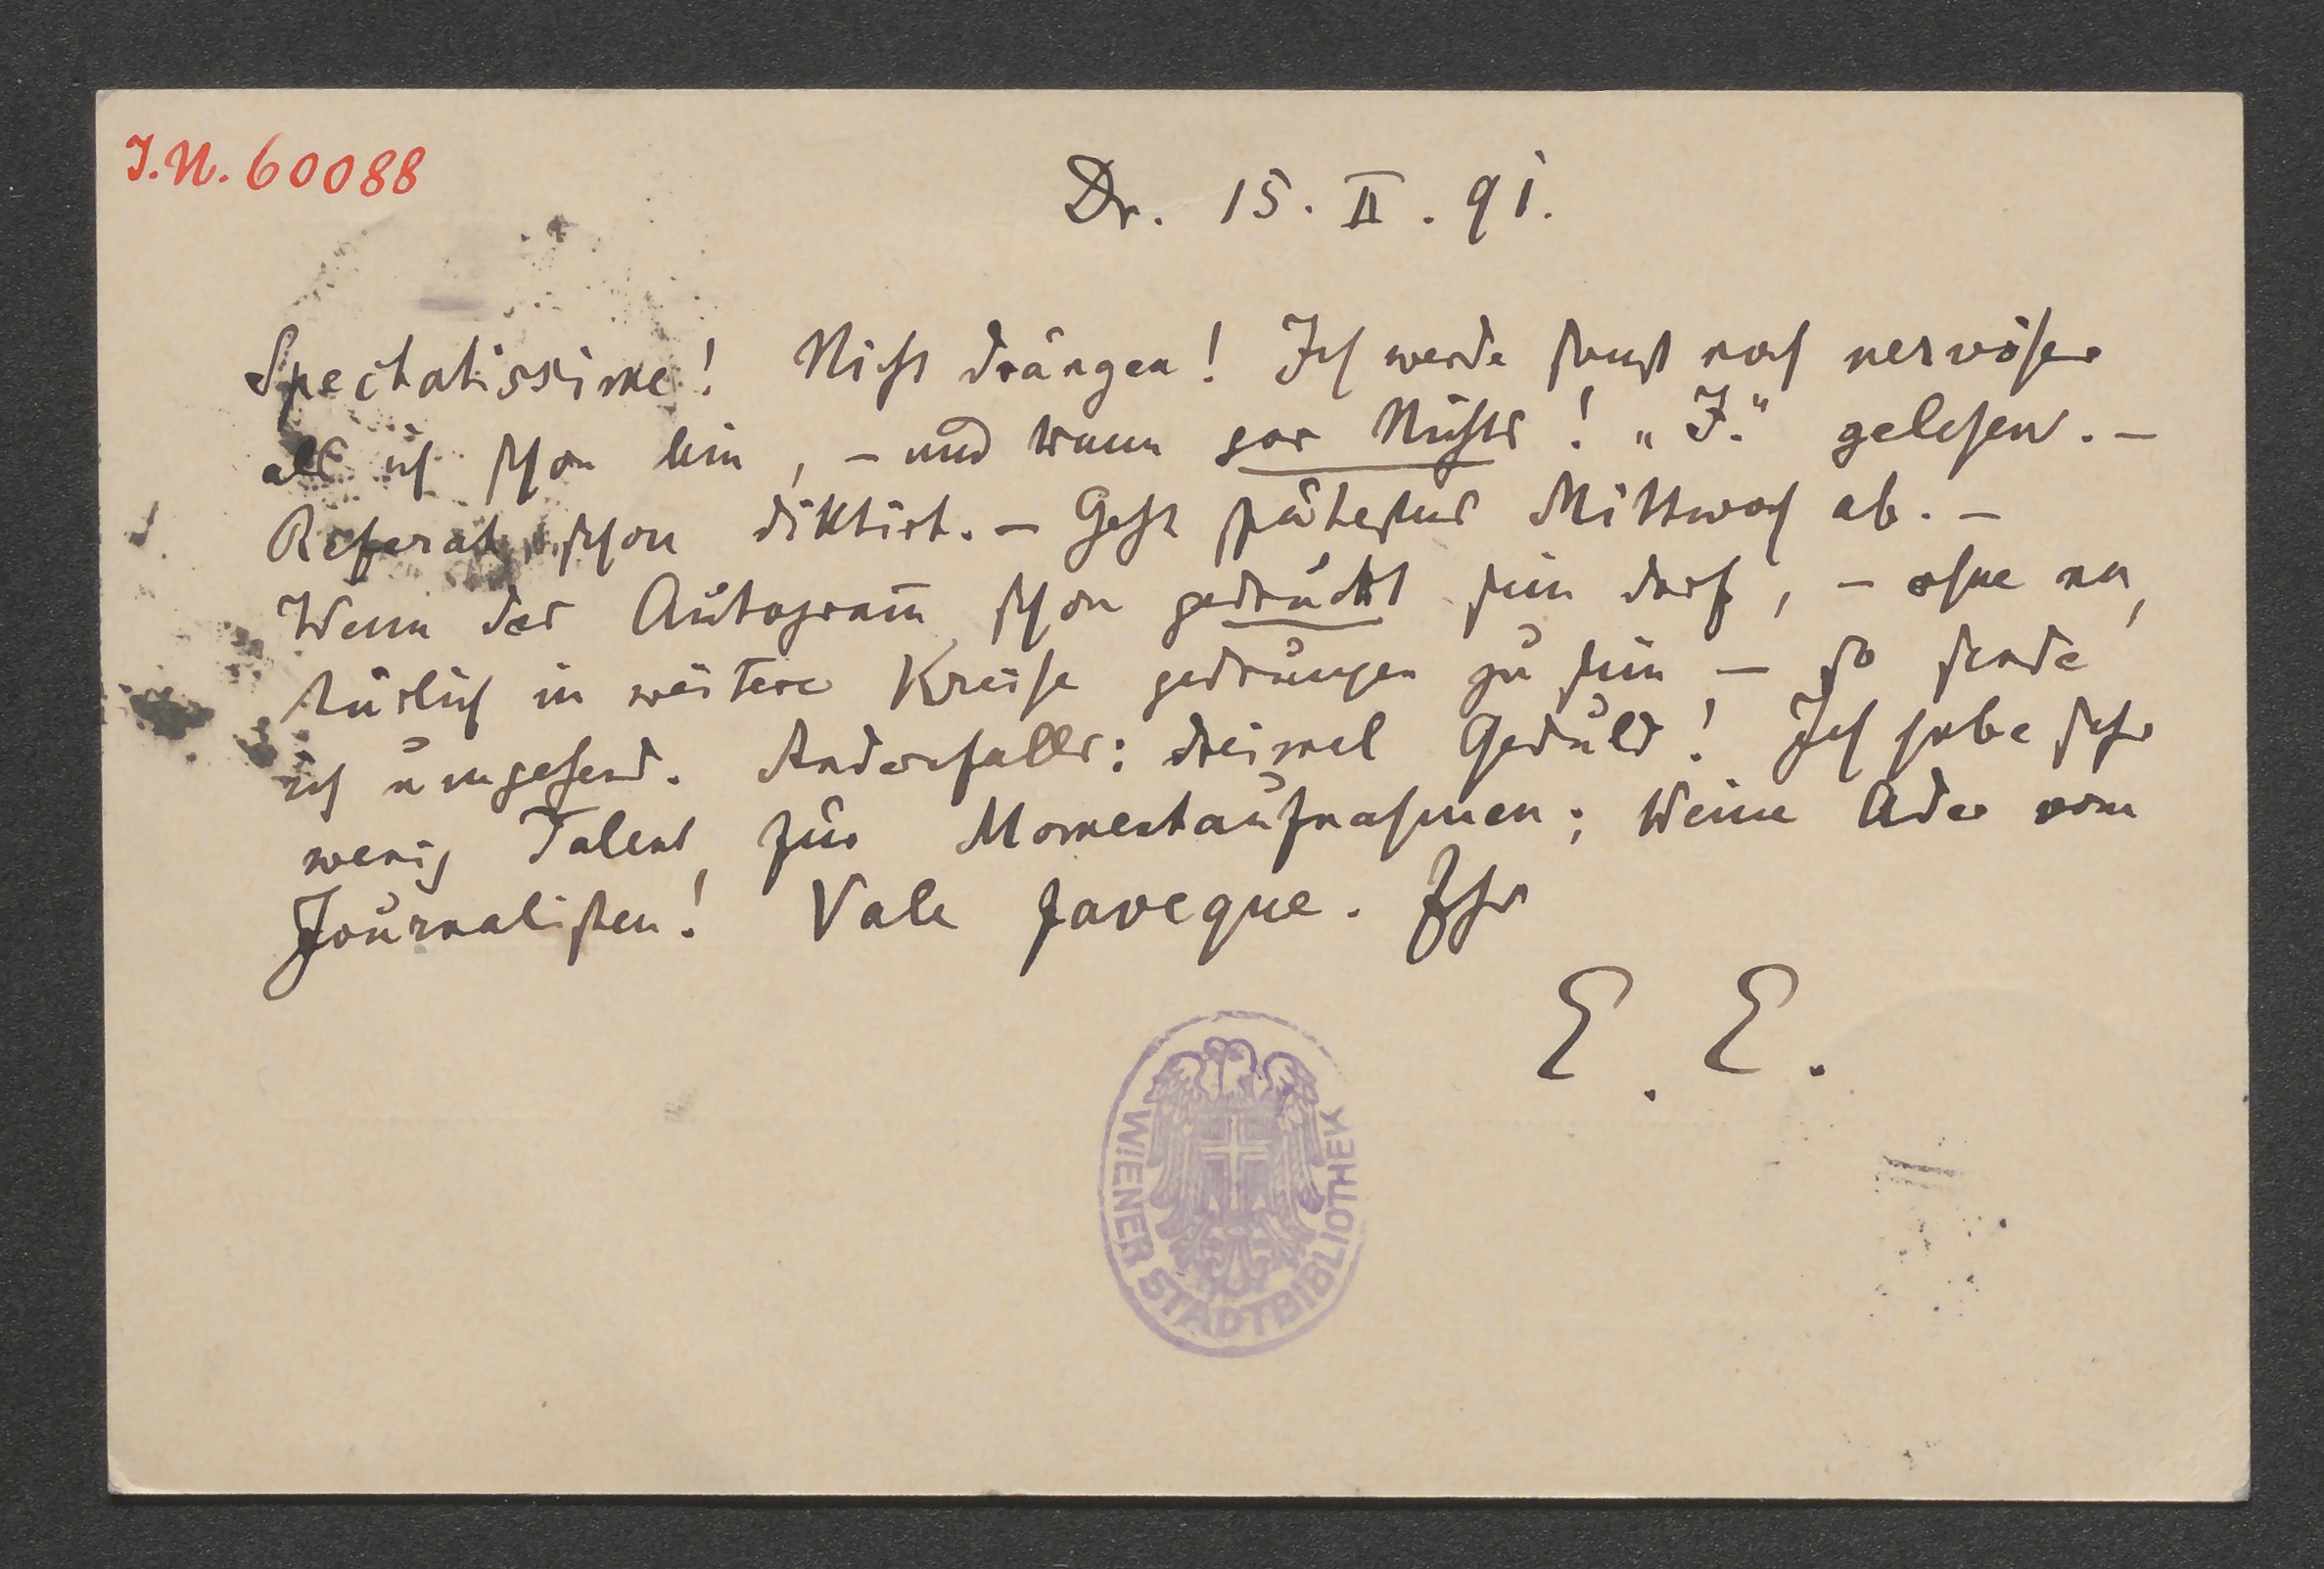 I.N. 60088
Dr. 15. II. 91.
Spectatissime! Nicht drängen! Ich werde sonst noch nervöser
als ich schon bin, – und dann gar Nichts! „J.“ gelesen. –
Referat schon diktirt. – Geht spätestens Mittwoch ab. –
Wenn das Autogram̅ schon gedruckt sein darf, – ohne na,
türlich in weitere Kreise gedrungen zu sein – so sende
ich umgehend. Andernfalls: dreimal Geduld! Ich habe sehr
wenig Talent für Momentaufnahmen; keine Ader vom
Journalisten! Vale faveque. Ihr
E. E.
WIENER STADTBIBLIOTHEK